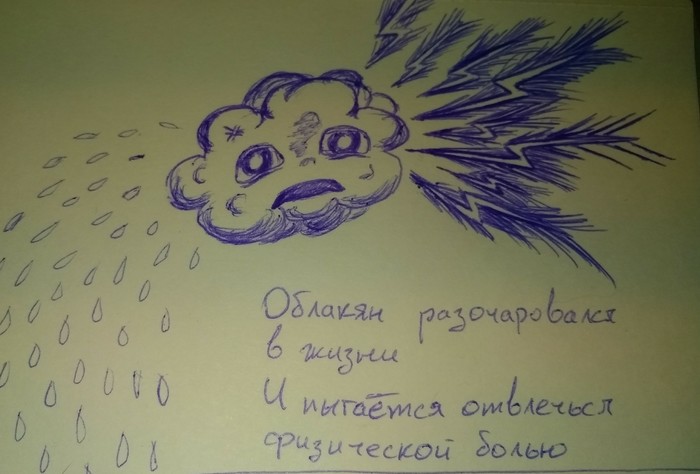 Облакян разочаровался
в жизни
И пытается отвлечься
физической болью